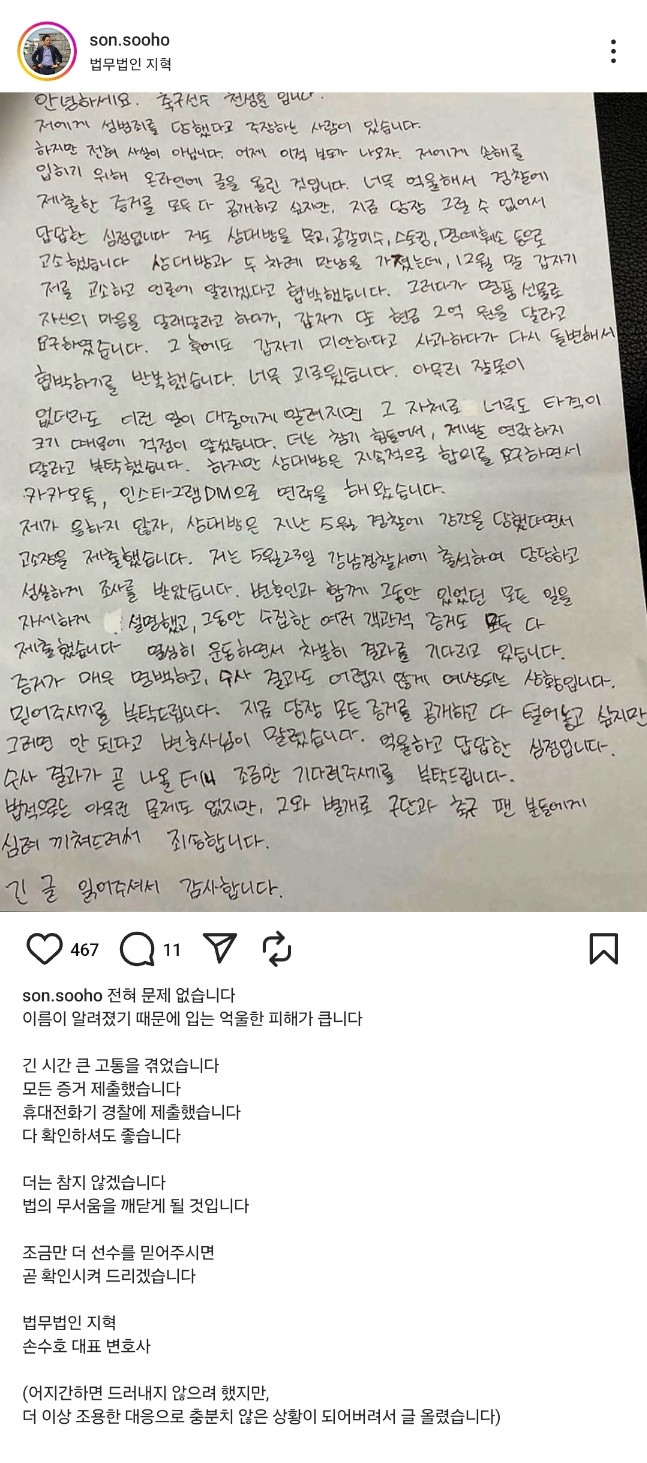 son.sooho
법무법인 지혁
안녕하세요. 축구선수 전성훈 입니다.
저에게 성범죄를 당했다고 주장하는 사람이 있습니다.
하지만 전혀 사실이 아닙니다. 어제 이적 보도가 나오자. 저에게 손해를
입히기 위해 온라인에 글을 올린 것입니다. 너무 억울해서 경찰에
제출한 증거를 모두 다 공개하고 싶지만, 지금 당장 그럴 수 없어서
답답한 심정입니다 저도 상대방을 무고, 공갈미수, 스토킹, 명예훼손 등으로
고소했습니다 상대방과 두 차례 만남을 가졌는데, 12월 말 갑자기
저를 고소하고 언론에 알리겠다고 협박했습니다. 그러다가 명품 선물로
자신의 마음을 달래달라고 하다가, 갑자기 또 현금 2억 원을 달라고
요구하였습니다. 그 후에도 갑자기 미안하다고 사과하다가 다시 돌변해서
협박하기를 반복했습니다. 너무 괴로웠습니다. 아무리 잘못이
없더라도 이런 일이 대중에게 알려지면 그 자체로 너무도 타격이
크기 때문에 걱정이 앞섰습니다. 더는 참기 힘들어서, 제발 연락하지
말라고 부탁했습니다. 하지만 상대방은 지속적으로 합의를 요구하면서
카카오톡, 인스타그램DM으로 연락을 해왔습니다.
제가 응하지 않자, 상대방은 지난 5월 경찰에 강간을 당했다면서
고소장을 제출했습니다. 저는 5월23일 강남경찰서에 출석하여 당당하고
성실하게 조사를 받았습니다. 변호인과 함께 그동안 있었던 모든 일을
자세하게 설명했고, 그동안 수집한 여러 객관적 증거도 모두 다
제출했습니다 열심히 운동하면서 차분히 결과를 기다리고 있습니다.
증거가 매우 명백하고, 수사 결과도 어렵지 않게 예상되는 상황입니다.
믿어주시기를 부탁드립니다. 지금 당장 모든 증거를 공개하고 다 털어놓고 싶지만
그러면 안 된다고 변호사님이 말렸습니다. 억울하고 답답한 심정입니다.
수사 결과가 곧 나올 테니 조금만 기다려주시기를 부탁드립니다.
법적으로는 아무런 문제도 없지만, 그와 별개로 구단과 축구 팬 분들에게
심려 끼쳐드려서 죄송합니다.
긴 글 읽어주셔서 감사합니다.
467 11
son.sooho 전혀 문제 없습니다
이름이 알려졌기 때문에 입는 억울한 피해가 큽니다
긴 시간 큰 고통을 겪었습니다
모든 증거 제출했습니다
휴대전화기 경찰에 제출했습니다
다 확인하셔도 좋습니다
더는 참지 않겠습니다
법의 무서움을 깨닫게 될 것입니다
조금만 더 선수를 믿어주시면
곧 확인시켜 드리겠습니다
법무법인 지혁
손수호 대표 변호사
(어지간하면 드러내지 않으려 했지만,
더 이상 조용한 대응으로 충분치 않은 상황이 되어버려서 글 올렸습니다)